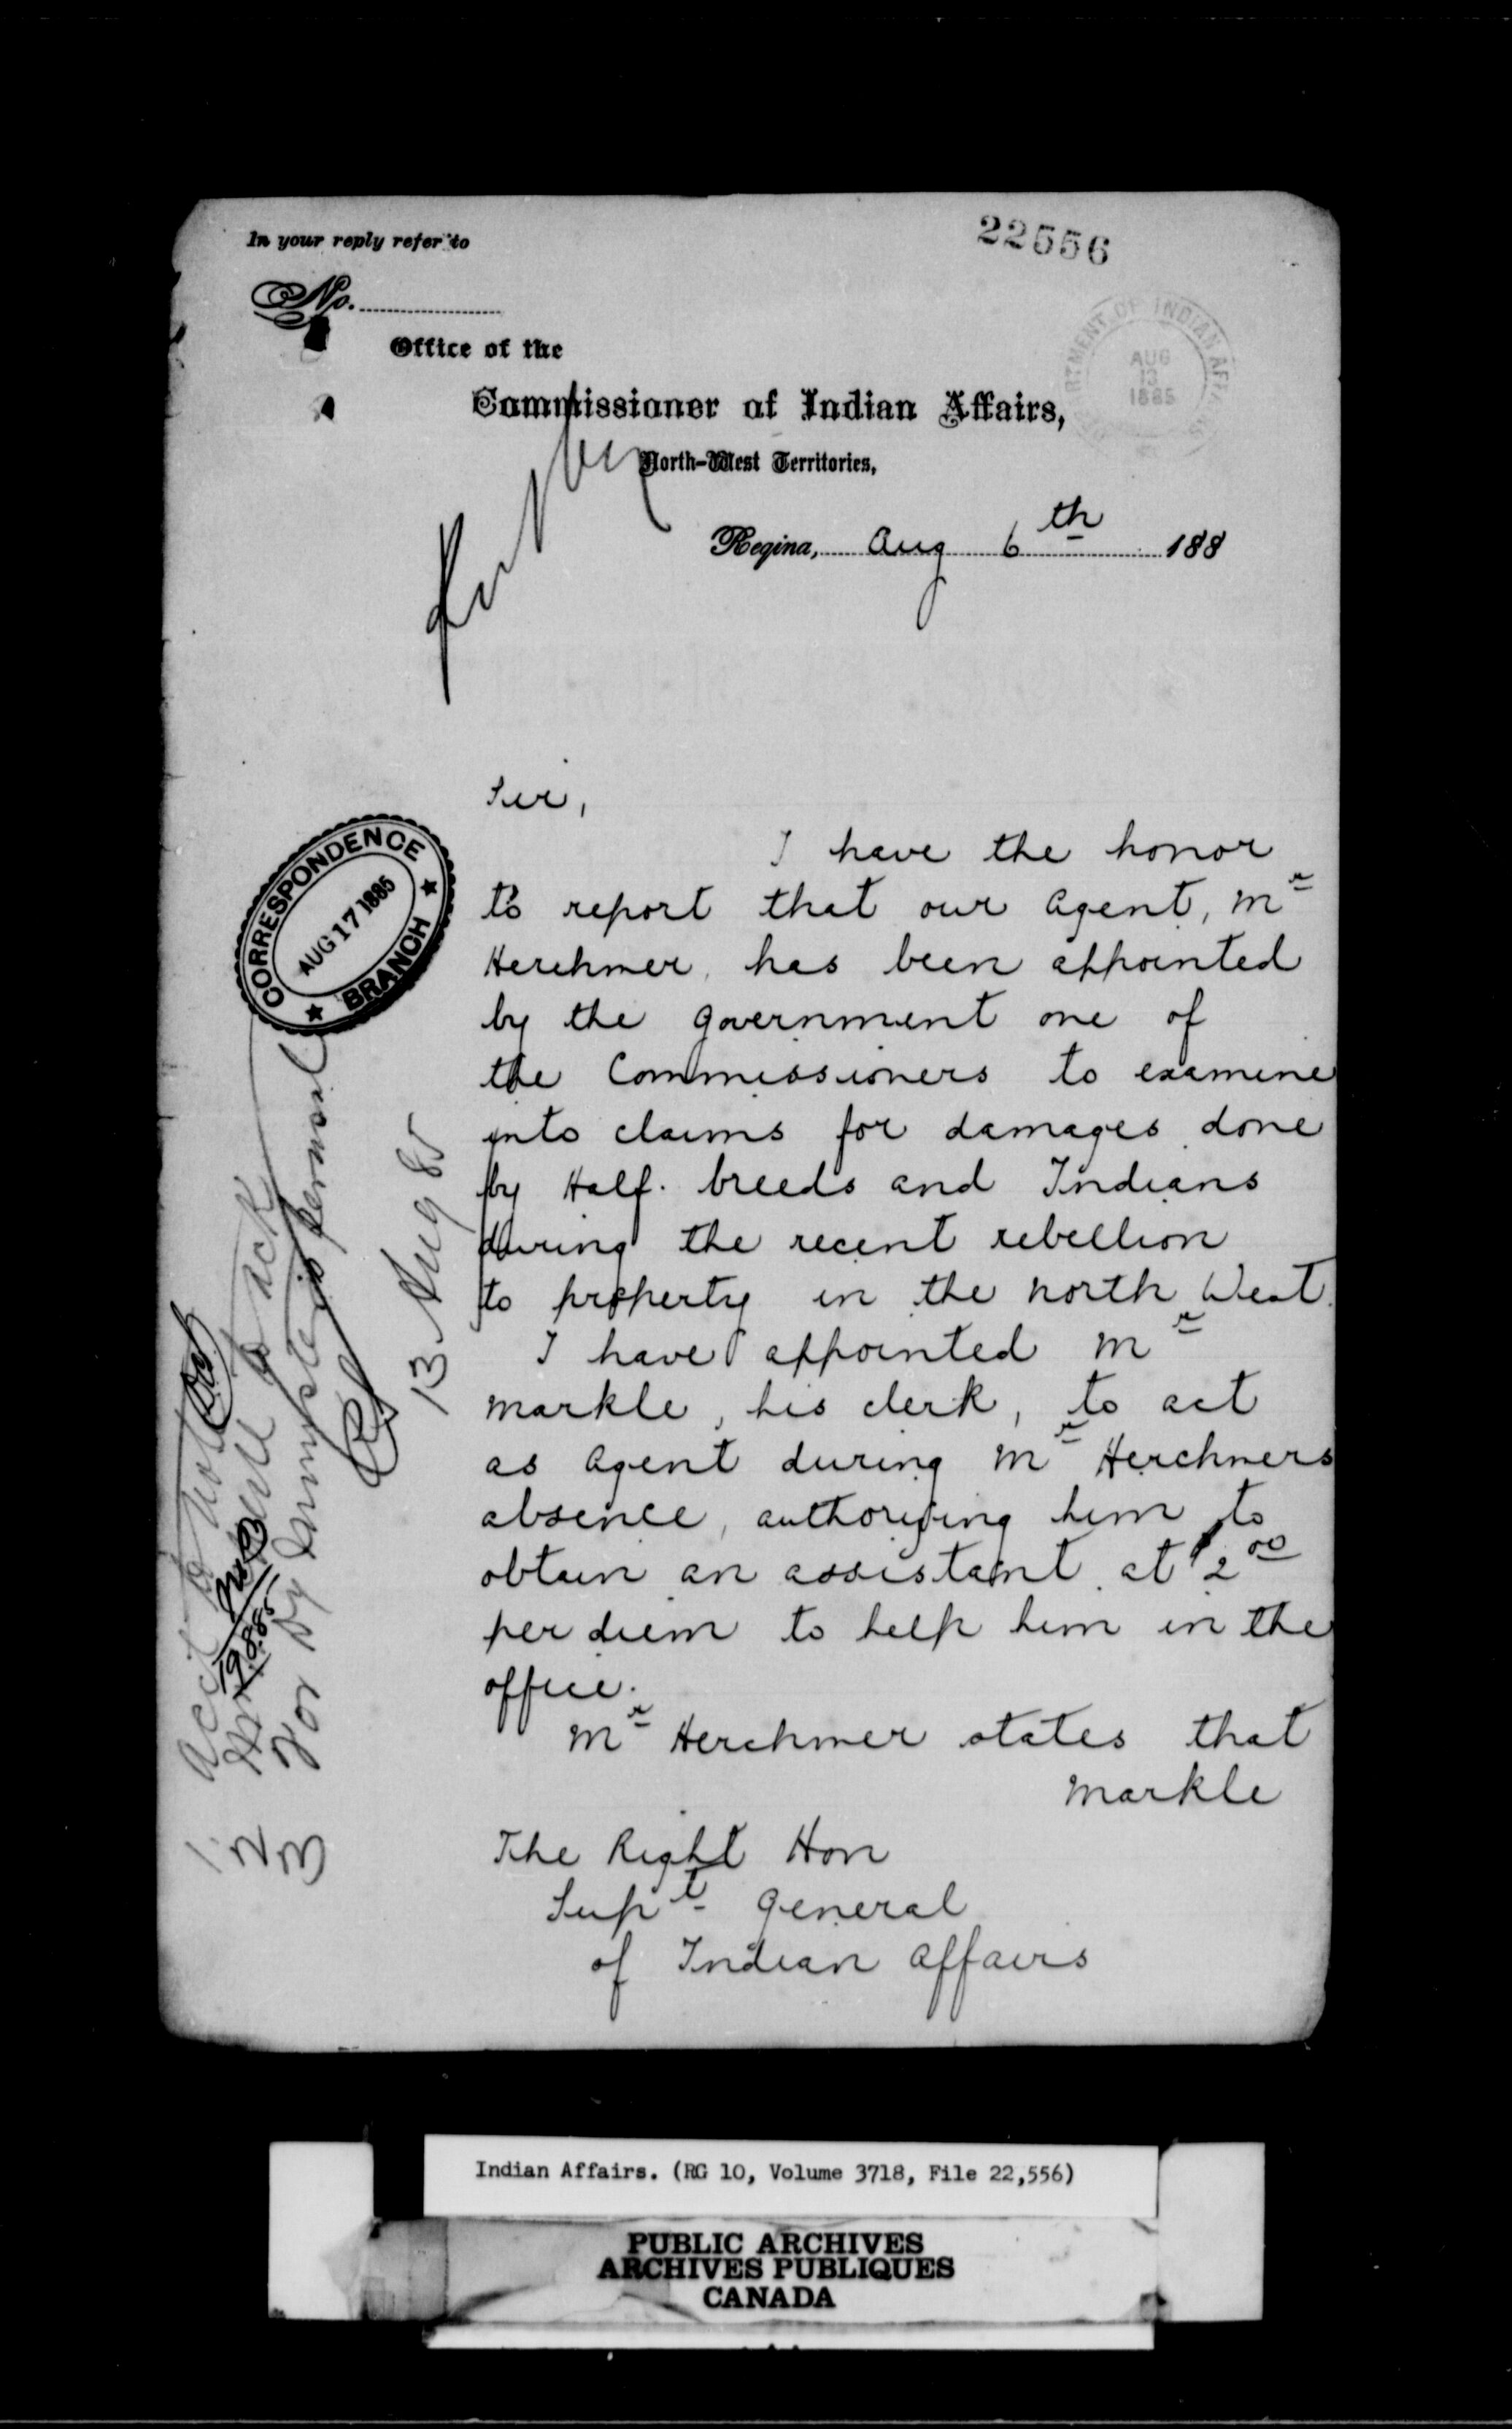 In your reply refer to
22556
No.
Office of the
Commissioner of Indian Affairs,
North-West Territories,
DEPARTMENT OF INDIAN AFFAIRS
AUG
13
1885
Regina, Aug 6th 188
Sir,
I have the honor
to report that our Agent, Mr
Herchmer, has been appointed
by the Government one of
the Commissioners to examine
into claims for damages done
by Half-breeds and Indians
during the recent rebellion
to property in the North West.
I have appointed Mr
Markle, his clerk, to act
as Agent during Mr Herchmers
absence, authorizing him to
obtain an assistant at $2 00
per diem to help him in the
office.
Mr Herchmer states that
Markle
The Right Hon
Supt General
of Indian Affairs
CORRESPONDENCE
AUG 17 1885
BRANCH
13 Aug 85
1. Acct to note
2 to ack
3 For Dy Minister's perusal
19.8.85
Indian Affairs. (RG 10, Volume 3718, File 22,556)
PUBLIC ARCHIVES
ARCHIVES PUBLIQUES
CANADA